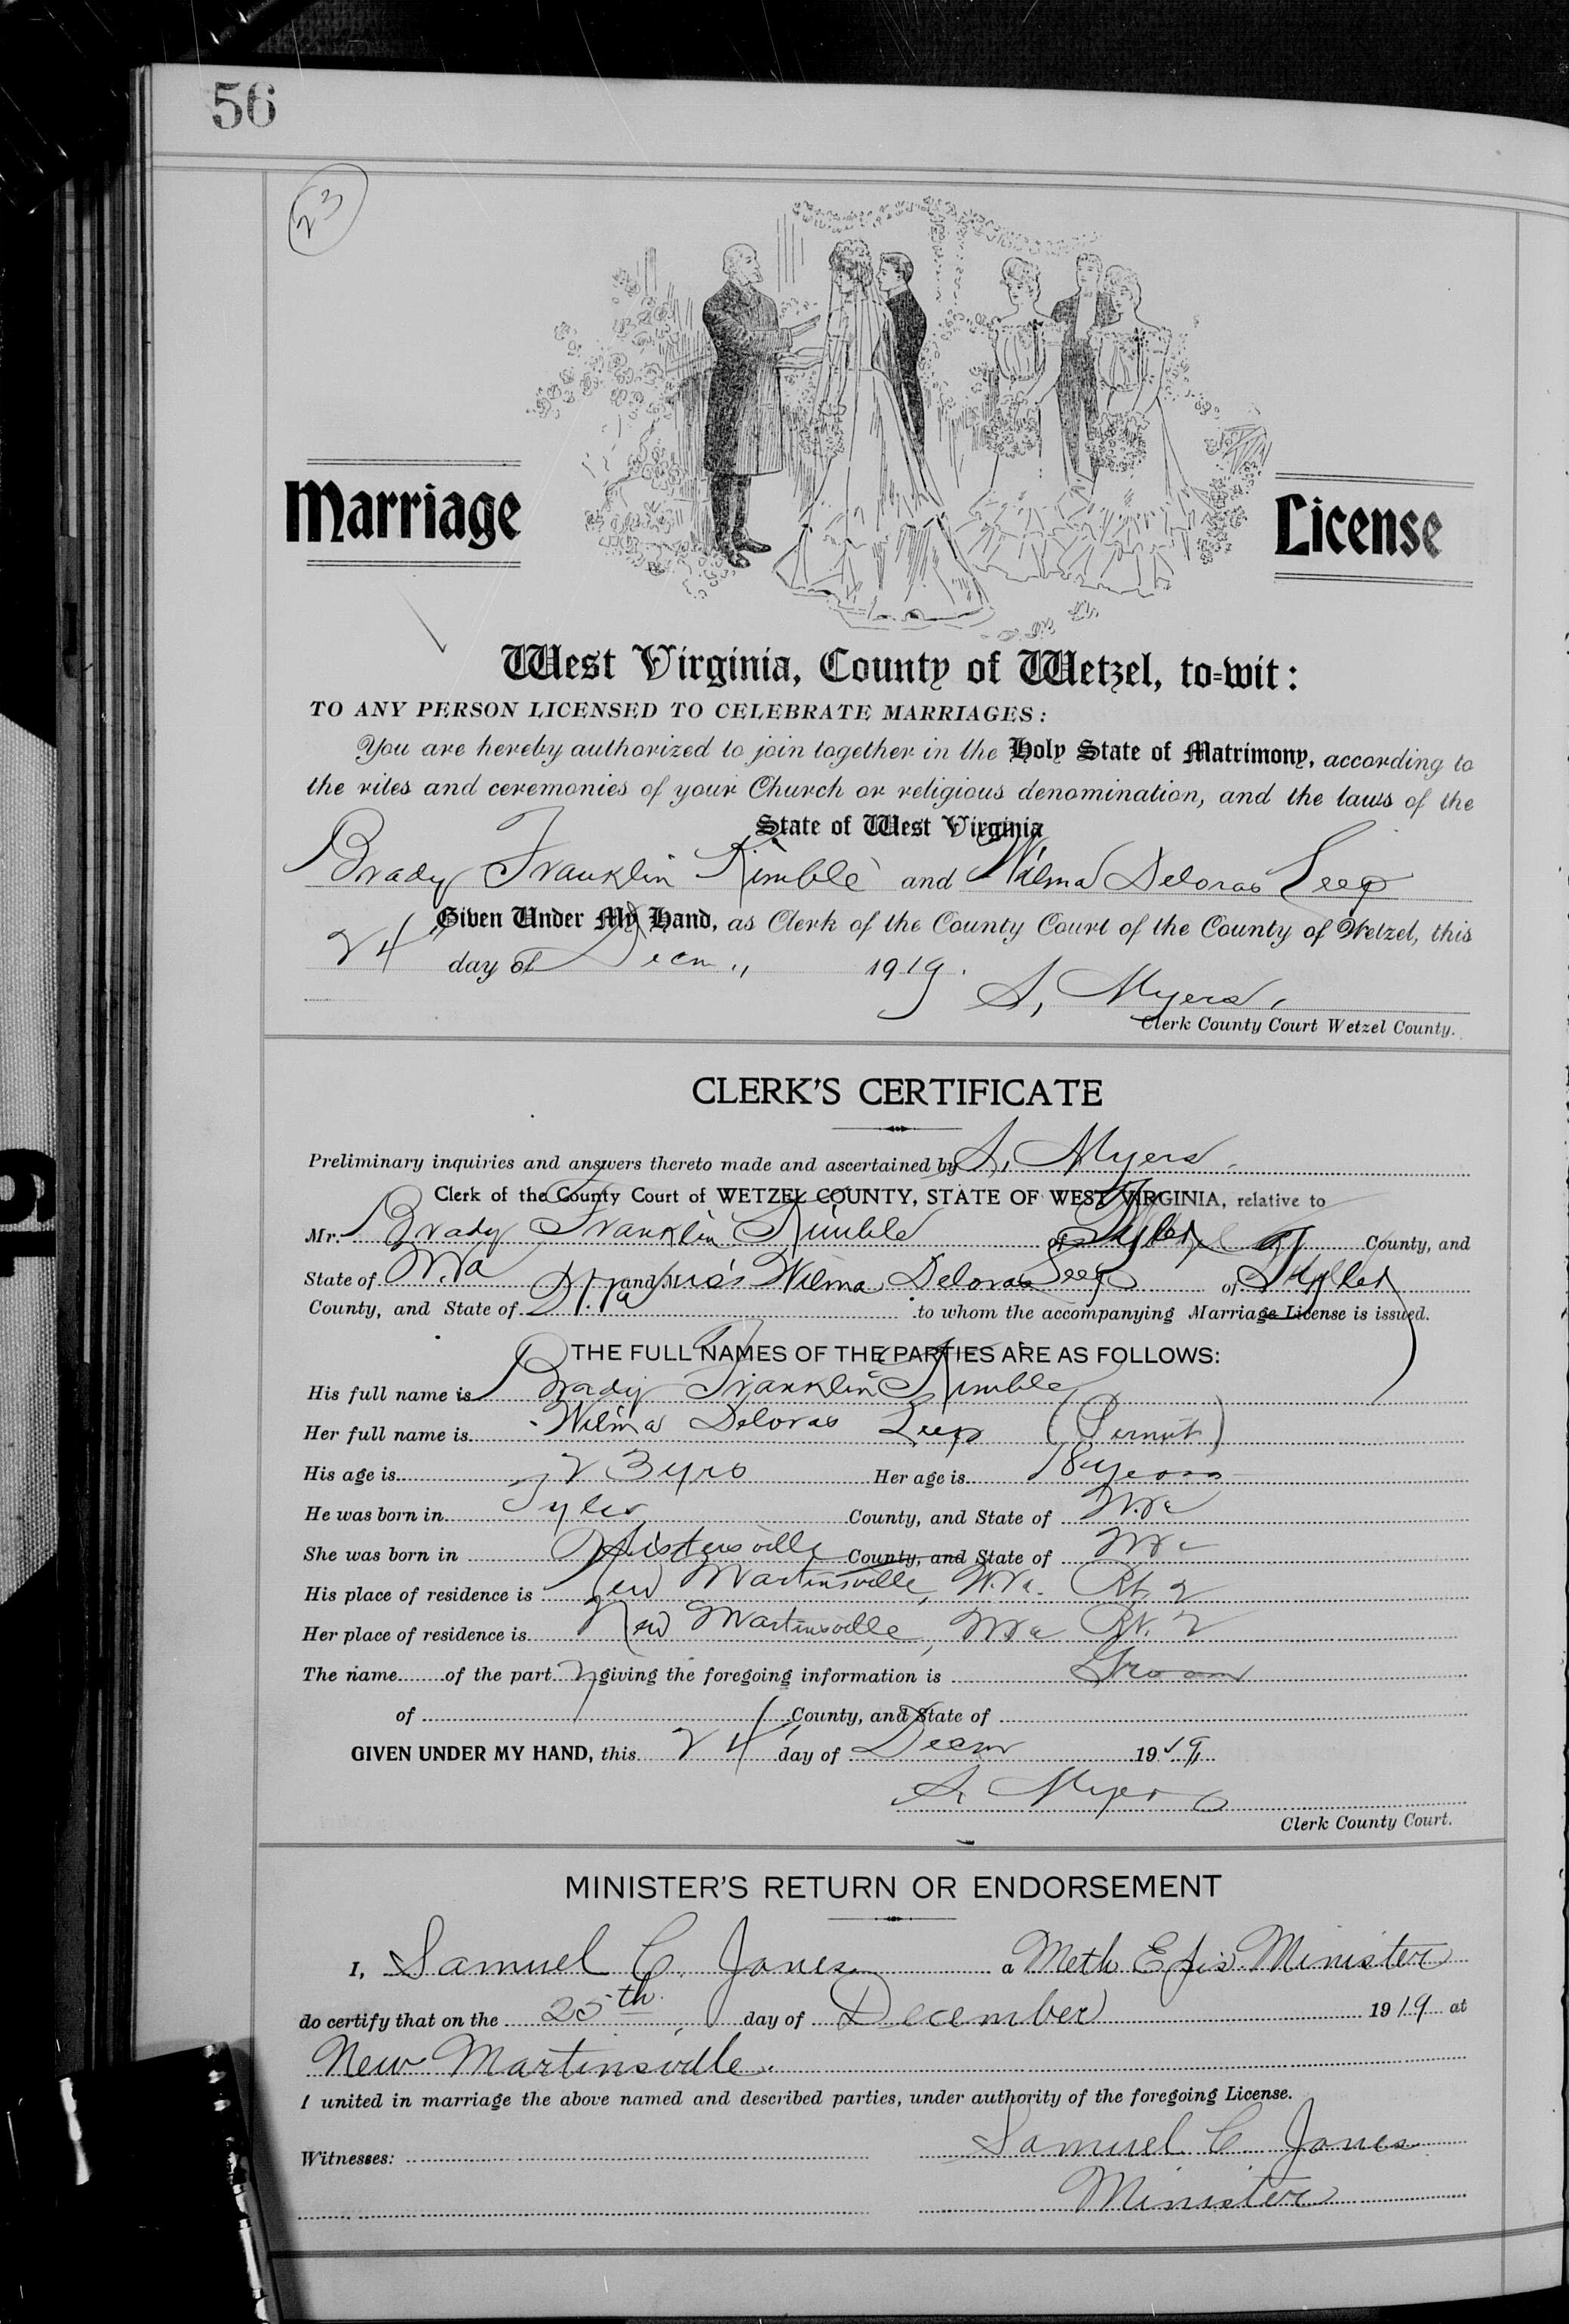 56
23
Marriage License
West Virginia, County of Wetzel, to-wit:
TO ANY PERSON LICENSED TO CELEBRATE MARRIAGES:
You are hereby authorized to join together in the Holy State of Matrimony, according to
the rites and ceremonies of your Church or religious denomination, and the laws of the
State of West Virginia
Brady Franklin Kimble and Wilma Deloras Leep
Given Under My Hand, as Clerk of the County Court of the County of Wetzel, this
24 day of Decm 1919.
S, Myers,
Clerk County Court Wetzel County.
CLERK'S CERTIFICATE
Preliminary inquiries and answers thereto made and ascertained by S, Myers.
Clerk of the County Court of WETZEL COUNTY, STATE OF WEST VIRGINIA, relative to
Mr. Brady Franklin Kimble of Tyler County, and
State of W.Va and Miss Wilma Deloras Leep of Tyler
County, and State of W.Va to whom the accompanying Marriage License is issued.
THE FULL NAMES OF THE PARTIES ARE AS FOLLOWS:
His full name is Brady Franklin Kimble
Her full name is Wilma Deloras Leep (Permit)
His age is 23 yrs Her age is 18 years
He was born in Tyler County, and State of W.Va
She was born in Sistersville County, and State of WVa
His place of residence is New Martinsville, W.Va. Rt. 2
Her place of residence is New Martinsville, WVa Rt. 2
The name of the part y giving the foregoing information is Groom
of County, and State of
GIVEN UNDER MY HAND, this 24 day of Decm 1919
S. Myers
Clerk County Court.
MINISTER'S RETURN OR ENDORSEMENT
I, Samuel C. Jones a Meth Epis Minister
do certify that on the 25th day of December 1919 at
New Martinsville.
I united in marriage the above named and described parties, under authority of the foregoing License.
Witnesses: Samuel C Jones
Minister